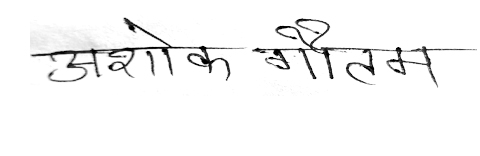 अशोक गौतम